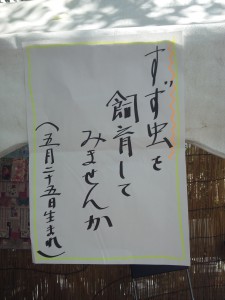 すず虫を
飼育して
みませんか
（五月二十五日生まれ）